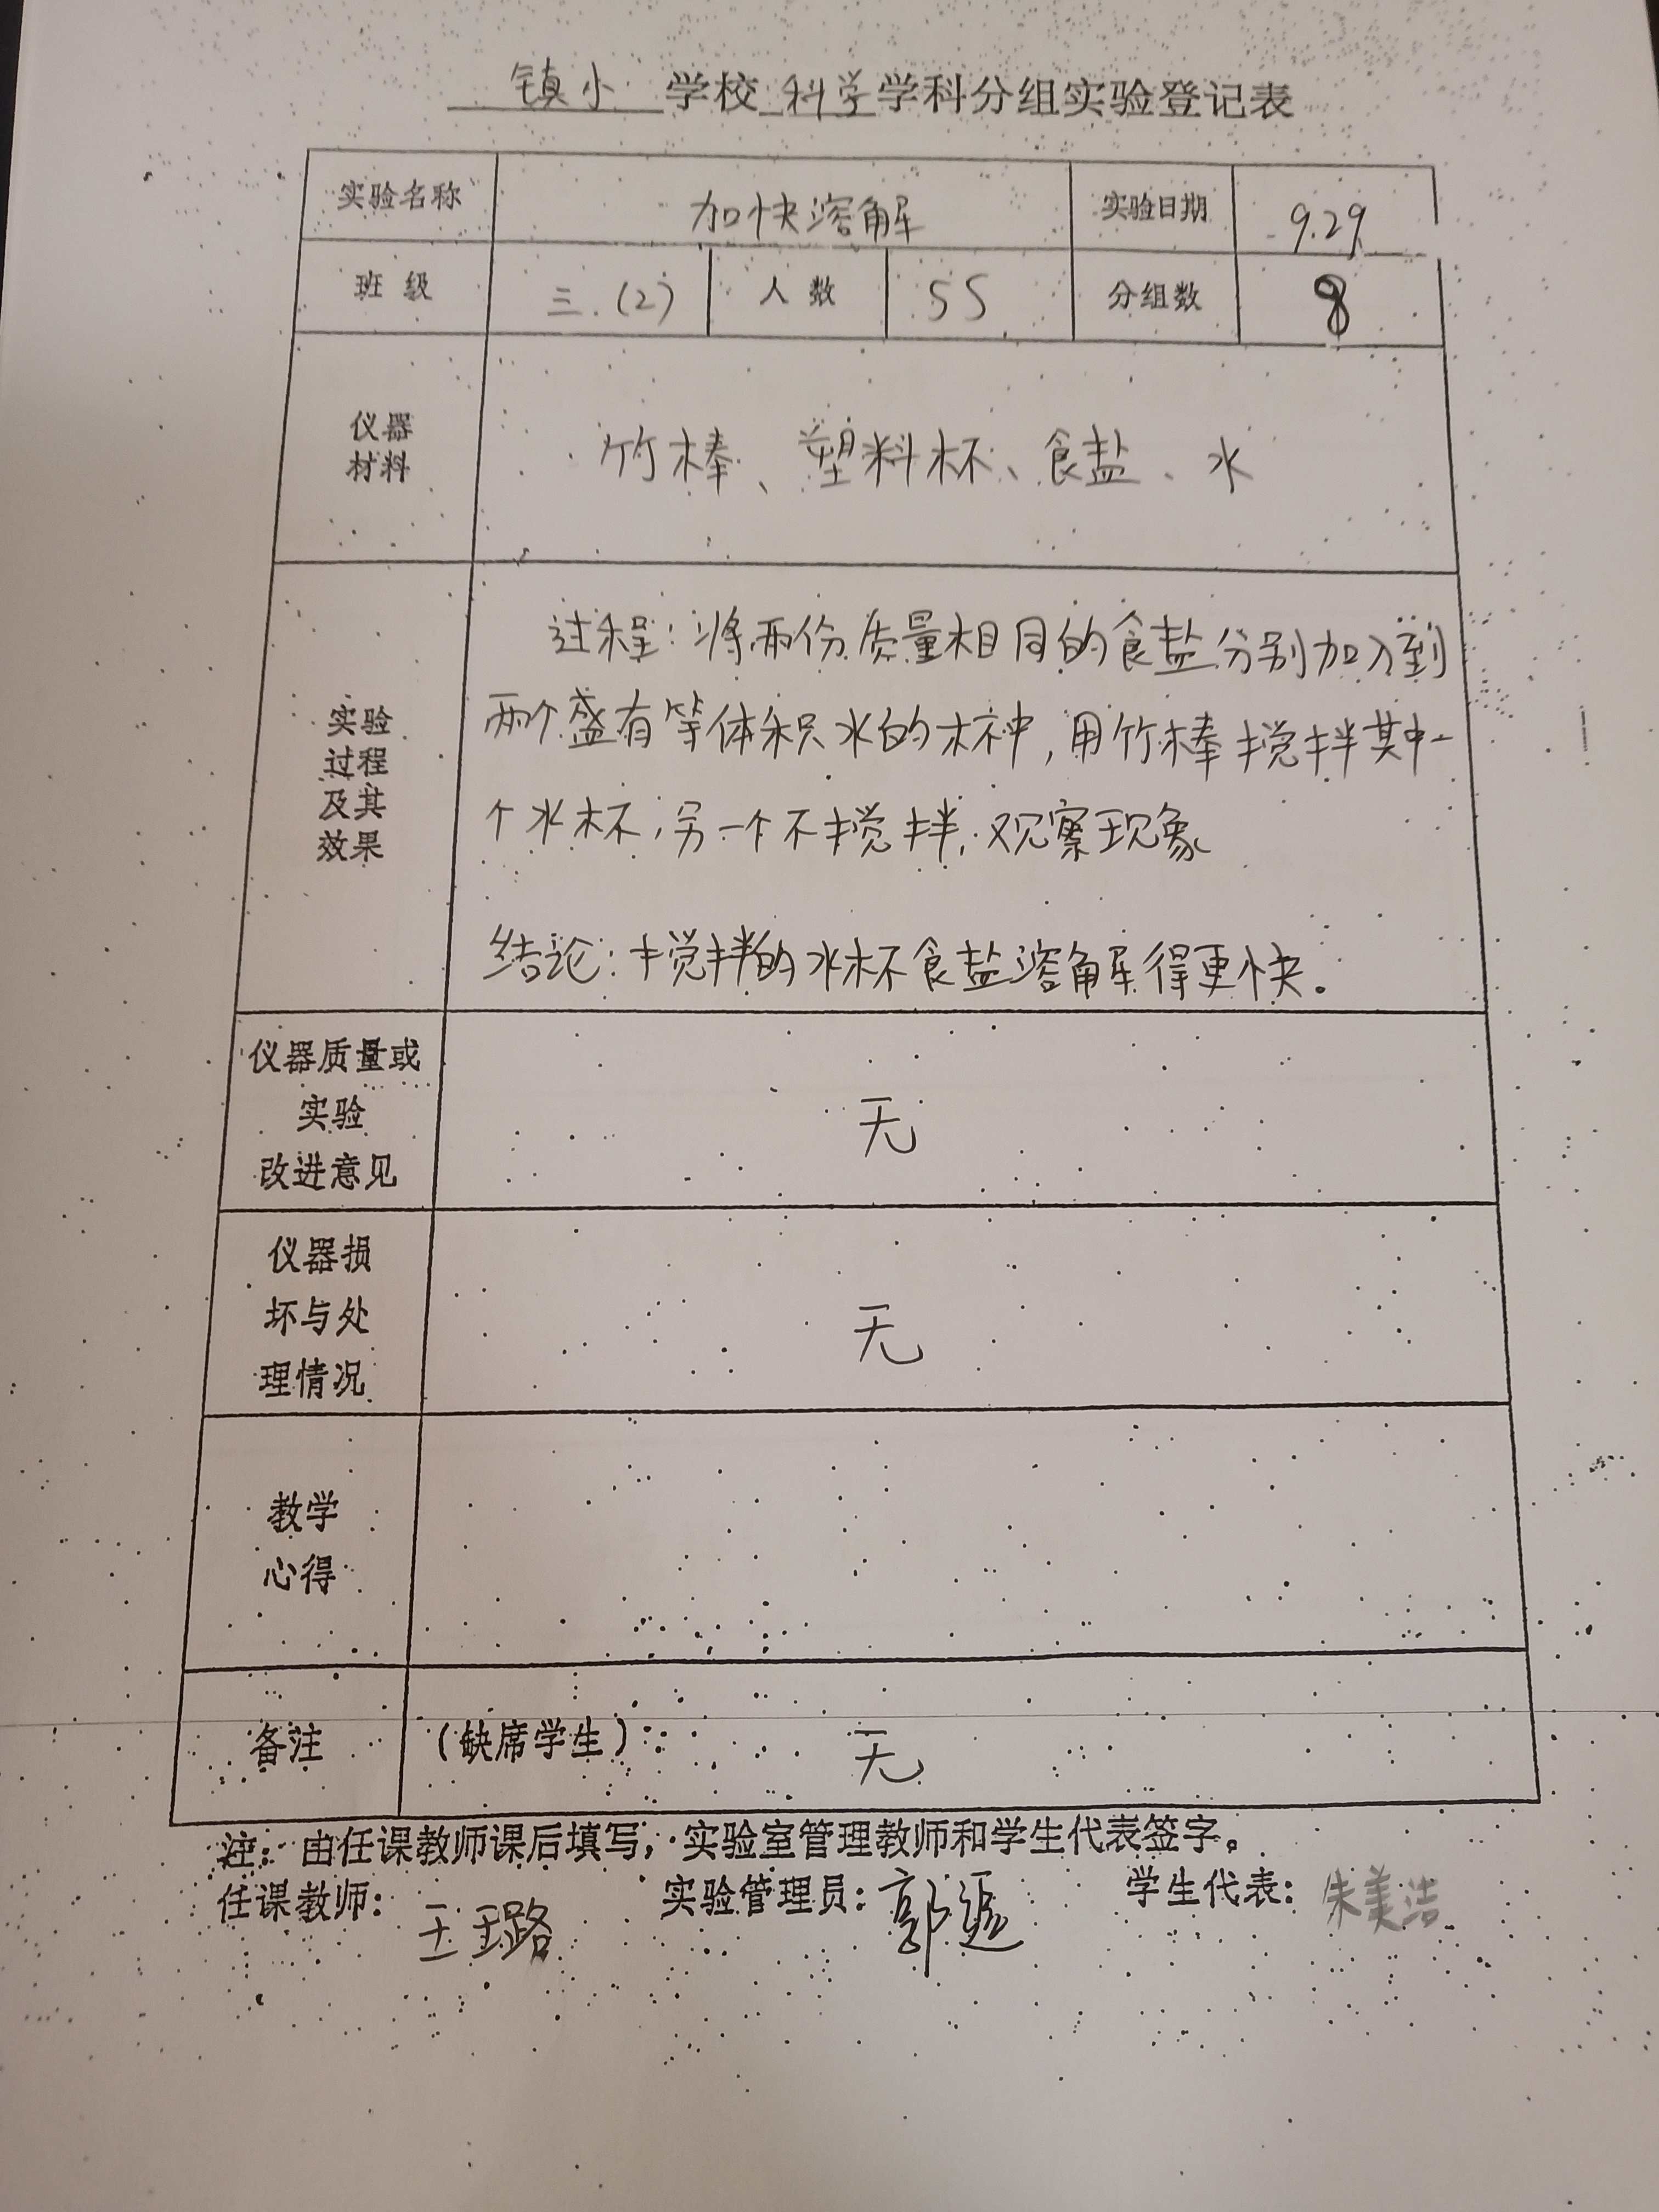 镇小 学校 科学 学科分组实验登记表
实验名称 加快溶解 实验日期 9.29
班 级 三.(2) 人 数 55 分组数 8
仪器
材料
竹棒、塑料杯、食盐、水
实验
过程
及其
效果
过程:将两份质量相同的食盐分别加入到
两个盛有等体积水的杯中,用竹棒搅拌其中一
个水杯,另一个不搅拌,观察现象
结论:搅拌的水杯食盐溶解得更快。
仪器质量或
实验
改进意见
无
仪器损
坏与处
理情况
无
教学
心得
备注 (缺席学生): 无
注:由任课教师课后填写,实验室管理教师和学生代表签字。
任课教师: 王璐 实验管理员: 郭 学生代表: 朱美洁